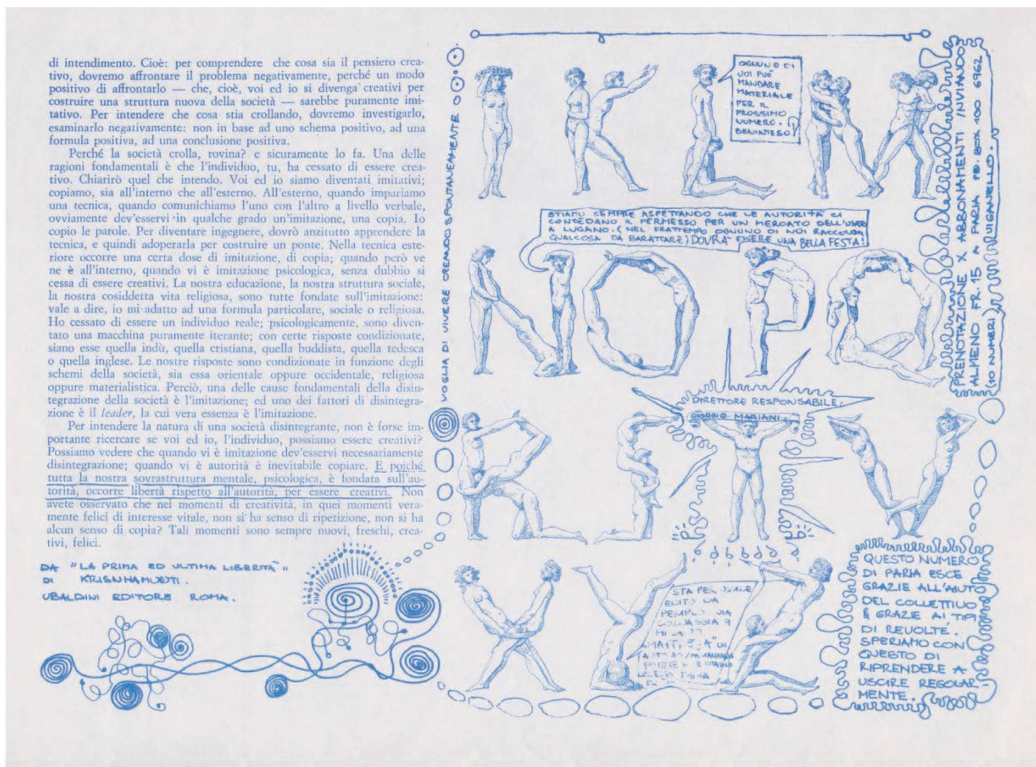 di intendimento. Cioè: per comprendere che cosa sia il pensiero crea-
tivo, dovremo affrontare il problema negativamente, perché un modo
positivo di affrontarlo — che, cioè, voi ed io si divenga creativi per
costruire una struttura nuova della società — sarebbe puramente imi-
tativo. Per intendere che cosa stia crollando, dovremo investigarlo,
esaminarlo negativamente: non in base ad uno schema positivo, ad una
formula positiva, ad una conclusione positiva.
Perché la società crolla, rovina? e sicuramente lo fa. Una delle
ragioni fondamentali è che l'individuo, tu, ha cessato di essere crea-
tivo. Chiarirò quel che intendo. Voi ed io siamo diventati imitativi;
copiamo, sia all'interno che all'esterno. All'esterno, quando impariamo
una tecnica, quando comunichiamo l'uno con l'altro a livello verbale,
ovviamente dev'esservi in qualche grado un'imitazione, una copia. Io
copio le parole. Per diventare ingegnere, dovrò anzitutto apprendere la
tecnica, e quindi adoperarla per costruire un ponte. Nella tecnica este-
riore occorre una certa dose di imitazione, di copia; quando però ve
ne è all'interno, quando vi è imitazione psicologica, senza dubbio si
cessa di essere creativi. La nostra educazione, la nostra struttura sociale,
la nostra cosiddetta vita religiosa, sono tutte fondate sull'imitazione:
vale a dire, io mi adatto ad una formula particolare, sociale o religiosa.
Ho cessato di essere un individuo reale; psicologicamente, sono diven-
tato una macchina puramente iterante; con certe risposte condizionate,
siano esse quella indù, quella cristiana, quella buddista, quella tedesca
o quella inglese. Le nostre risposte sono condizionate in funzione degli
schemi della società, sia essa orientale oppure occidentale, religiosa
oppure materialistica. Perciò, una delle cause fondamentali della disin-
tegrazione della società è l'imitazione; ed uno dei fattori di disintegra-
zione è il leader, la cui vera essenza è l'imitazione.
Per intendere la natura di una società disintegrante, non è forse im-
portante ricercare se voi ed io, l'individuo, possiamo essere creativi?
Possiamo vedere che quando vi è imitazione dev'esservi necessariamente
disintegrazione; quando vi è autorità è inevitabile copiare. E poiché
tutta la nostra sovrastruttura mentale, psicologica, è fondata sull'au-
torità, occorre libertà rispetto all'autorità, per essere creativi. Non
avete osservato che nei momenti di creatività, in quei momenti vera-
mente felici di interesse vitale, non si ha senso di ripetizione, non si ha
alcun senso di copia? Tali momenti sono sempre nuovi, freschi, crea-
tivi, felici.
DA "LA PRIMA ED ULTIMA LIBERTÀ"
DI KRISHNAMURTI.
UBALDINI EDITORE ROMA.
VOGLIA DI VIVERE CREANDO SPONTANEAMENTE
OGNUNO DI
VOI PUÒ
MANDARE
MATERIALE
PER IL
PROSSIMO
NUMERO.
BENINTESO!
I K L M
STIAMO SEMPRE ASPETTANDO CHE LE AUTORITÀ CI
CONCEDANO IL PERMESSO PER UN MERCATO DELL'USATO
A LUGANO. (NEL FRATTEMPO OGNUNO DI NOI RACCOLGA
QUALCOSA DA BARATTARE) DOVRÀ ESSERE UNA BELLA FESTA!
N O P Q
PRENOTAZIONE X ABBONAMENTI INVIANDO
ALMENO FR. 15 A PARIA PO. BOX 100 6962
(10 NUMERI) VIGANELLO.
DIRETTORE RESPONSABILE:
GIORGIO MARIANI
R S T V
X Y Z
QUESTO NUMERO
DI PARIA ESCE
GRAZIE ALL'AIUTO
DEL COLLETTIVO
& GRAZIE AI TIPI
DI REVOLTE.
SPERIAMO CON
QUESTO DI
RIPRENDERE A
USCIRE REGOLAR-
MENTE.